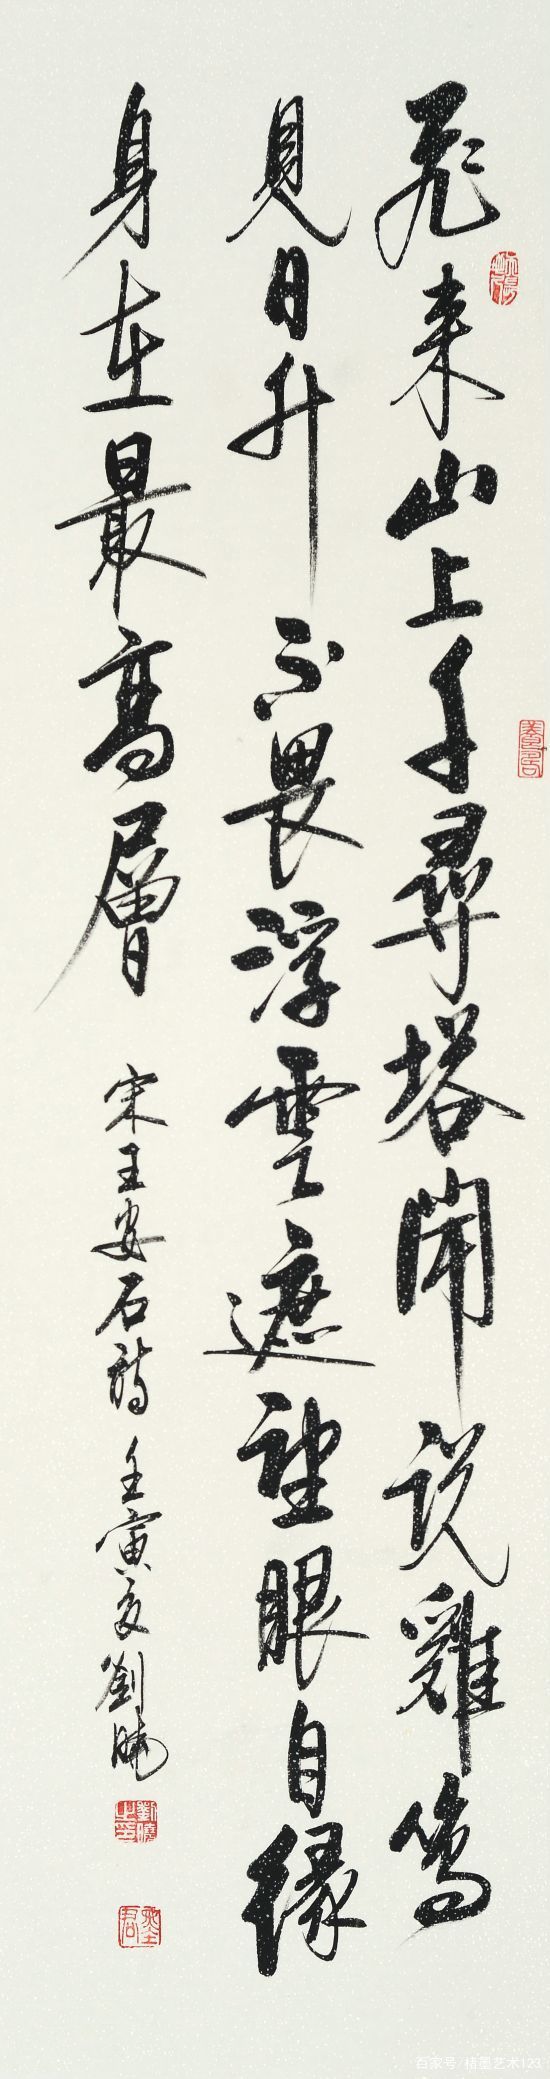 飛来山上千尋塔聞説雞鳴
見日升不畏浮雲遮望眼自緣
身在最高層
宋王安石詩壬寅夏劉曉
百家号/楮墨艺术123